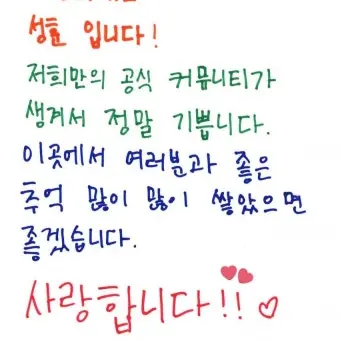 성효 입니다!
저희만의 공식 커뮤니티가
생겨서 정말 기쁩니다.
이곳에서 여러분과 좋은
추억 많이 많이 쌓았으면
좋겠습니다.
사랑합니다!! ♡